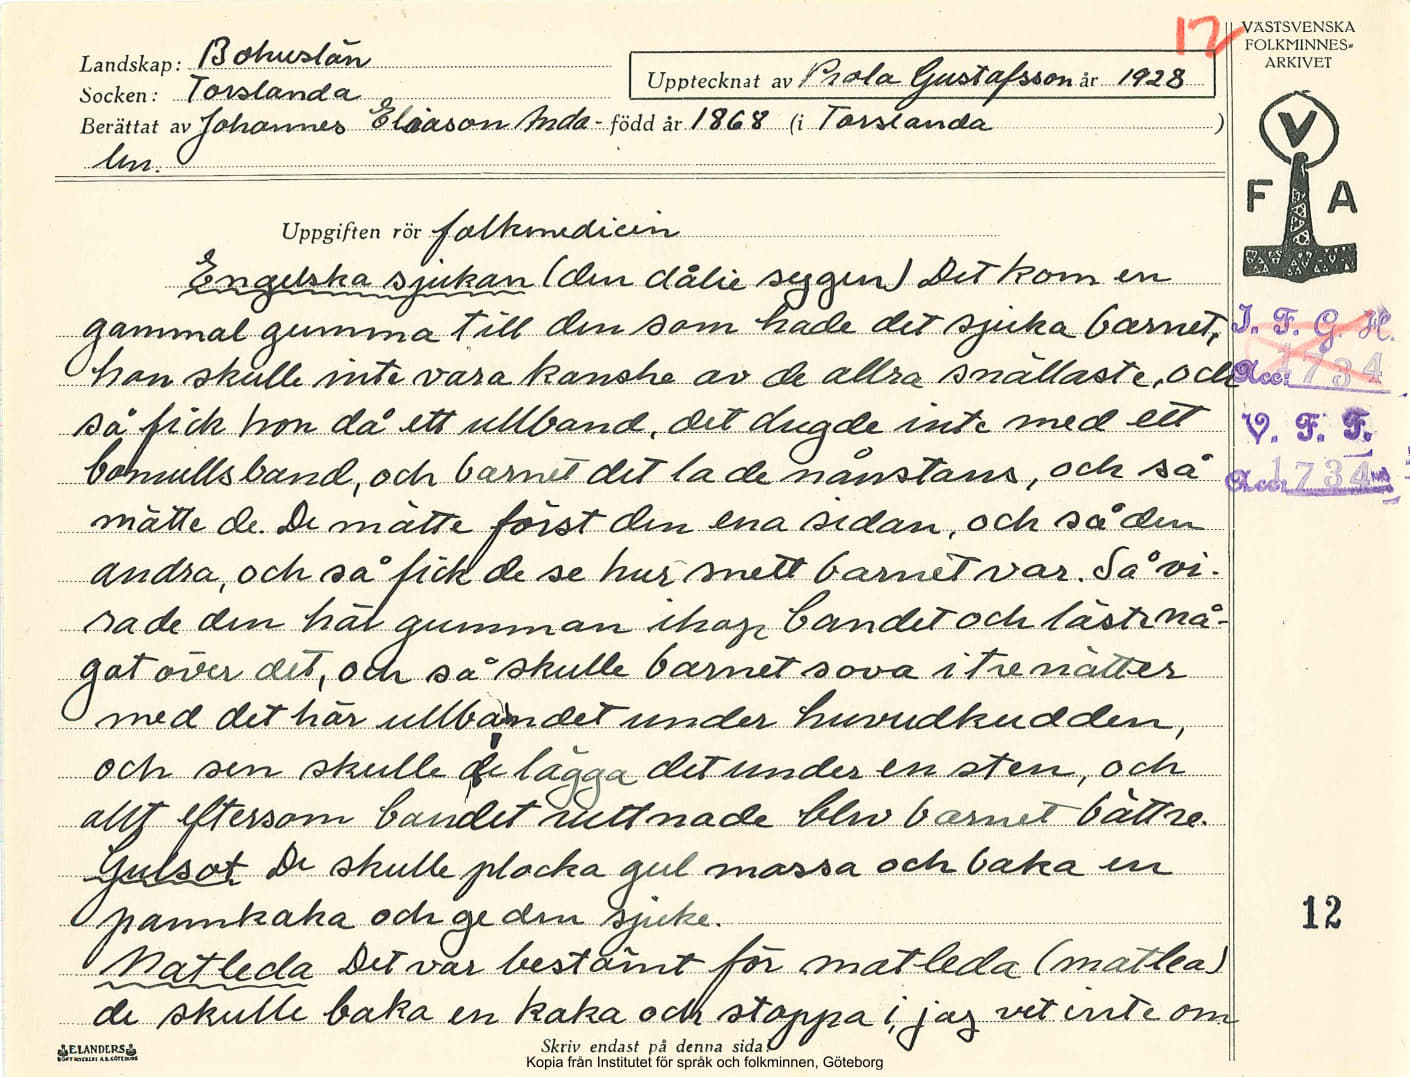 12
VÄSTSVENSKA
FOLKMINNES-
ARKIVET
Landskap: Bohuslän
Socken: Torslanda
Upptecknat av Gustafsson år 1928
Berättat av Johannes Eliasson Anda- född år 1868 (i Torslanda )
len.
V
F A
Uppgiften rör folkmedicin
Engelska sjukan (den dålie seggen) Det kom en
gammal gumma till den som hade det sjuka barnet,
hon skulle inte vara kanske av de allra snällaste, och
så fick hon då ett ullband, det dugde inte med ett
bomullsband, och barnet det lade nånstans, och så
mätte de. De mätte först den ena sidan, och så den
andra, och så fick de se hur snett barnet var. Så vi-
rade den här gumman ihop bandet och läste nå-
got över det, och så skulle barnet sova i tre nätter
med det här ullbandet under huvudkudden,
och sen skulle de lägga det under en sten, och
allt eftersom bandet ruttnade blev barnet bättre.
Gulsot De skulle plocka gul massa och baka en
pannkaka och ge den sjuke.
Matleda Det var bestämt för matleda (matlea)
de skulle baka en kaka och stoppa i, jag vet inte om
I. F. G. H.
Acc: 1734
V. F. F.
Acc: 1734
12
ELANDERS
BOKTRYCKERI A.B. GÖTEBORG
Skriv endast på denna sida!
Kopia från Institutet för språk och folkminnen, Göteborg